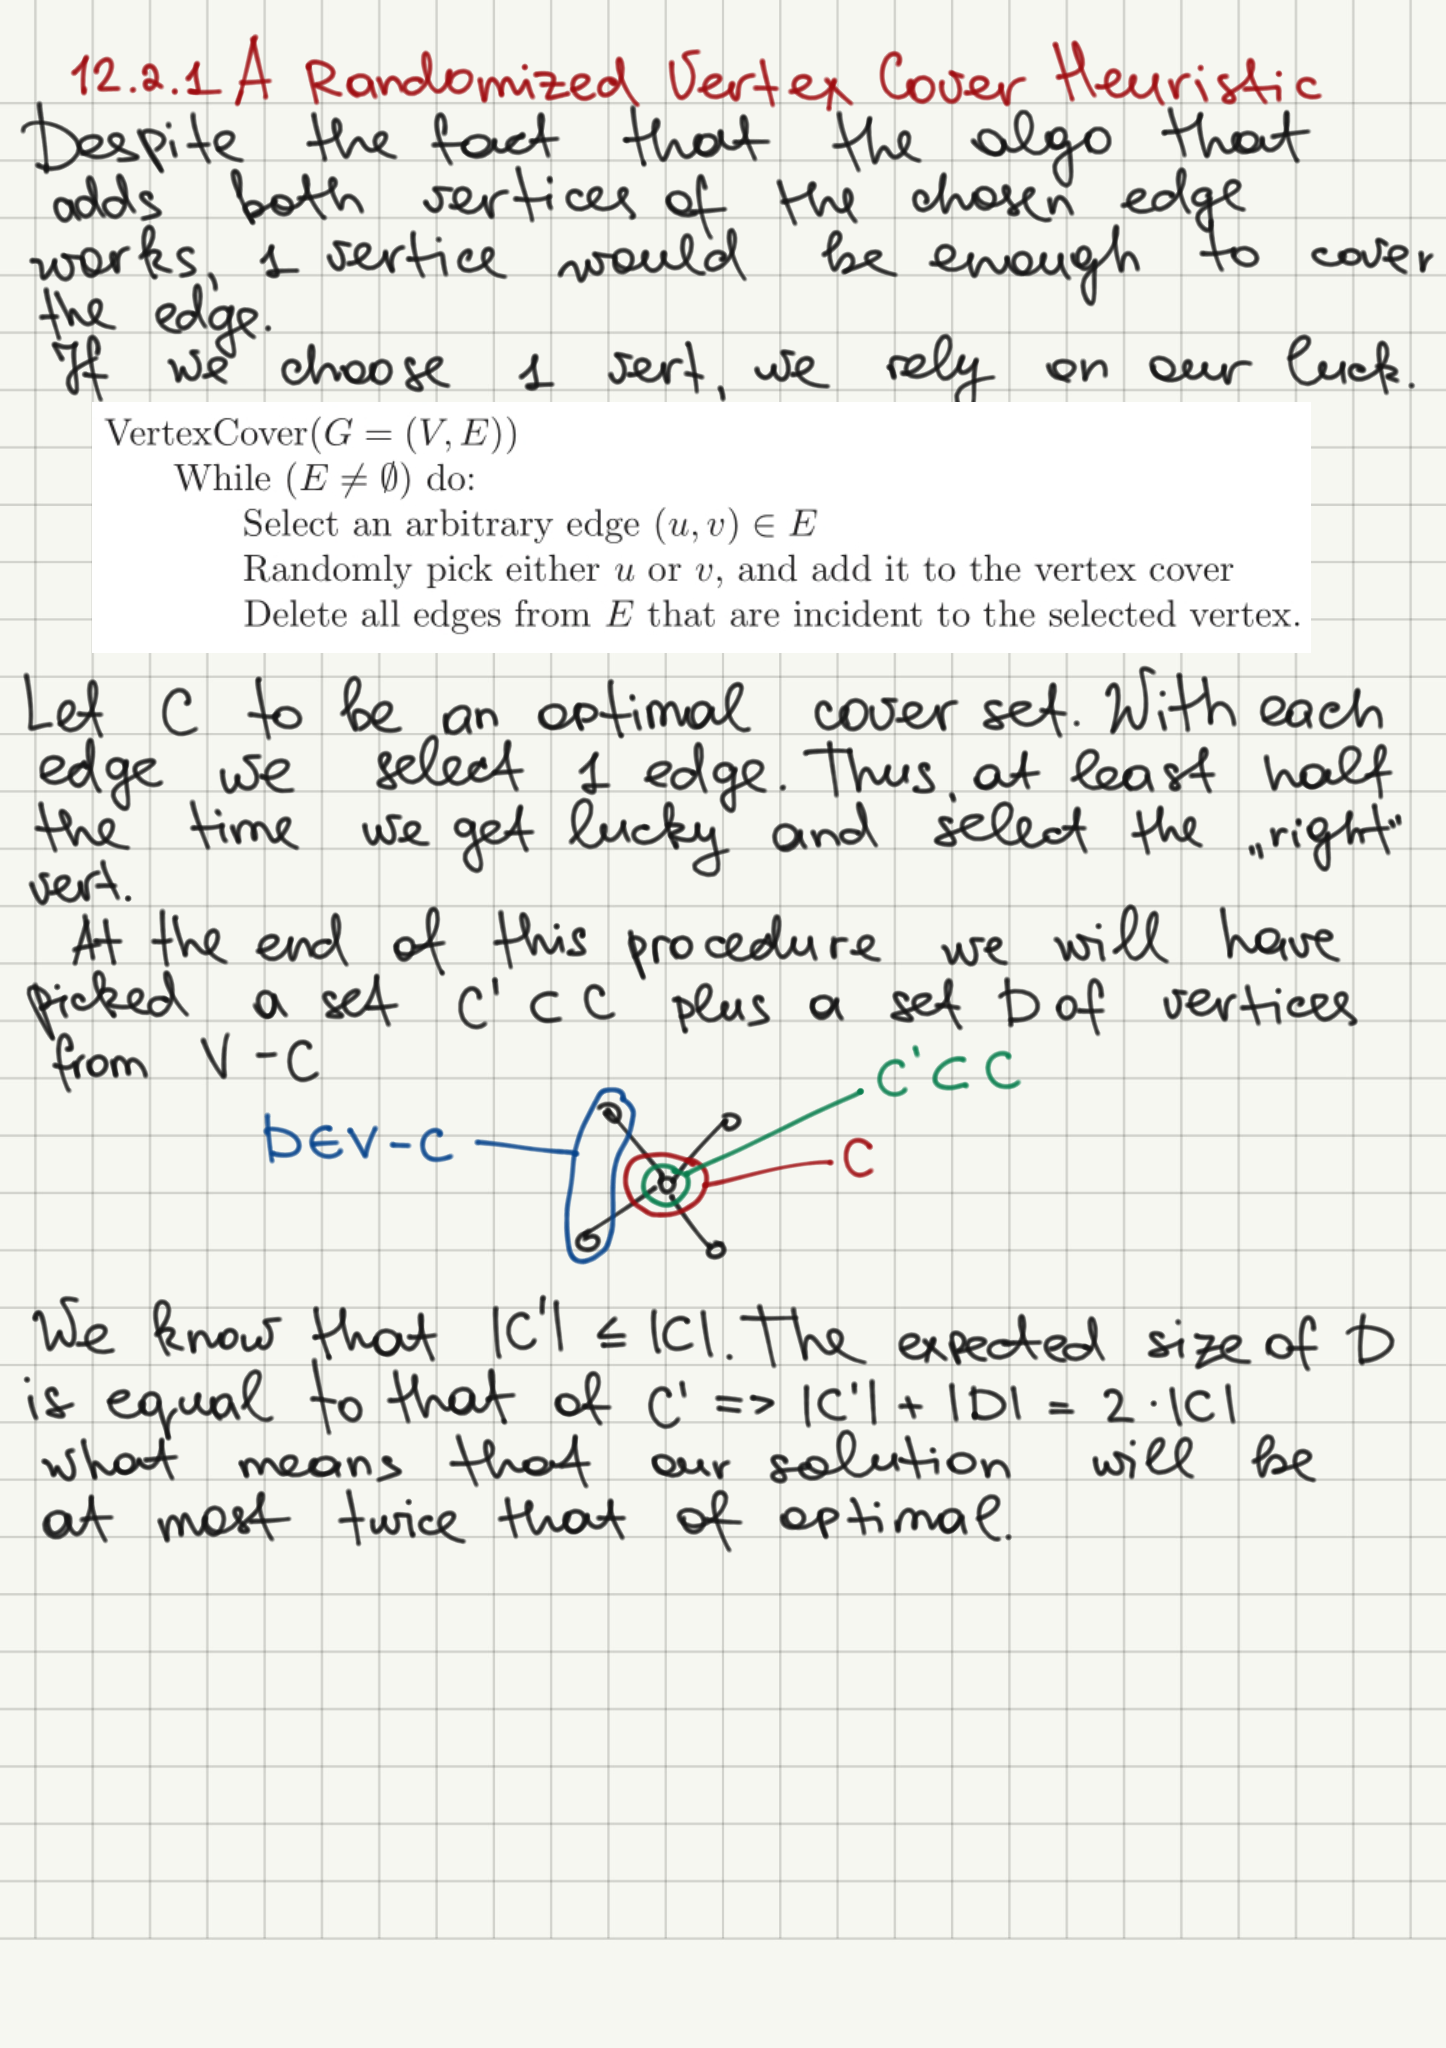 12.2.1 A Randomized Vertex Cover Heuristic
Despite the fact that the algo that
adds both vertices of the chosen edge
works, 1 vertice would be enough to cover
the edge.
If we choose 1 vert, we rely on our luck.
VertexCover(G = (V, E))
While (E ≠ ∅) do:
Select an arbitrary edge (u, v) ∈ E
Randomly pick either u or v, and add it to the vertex cover
Delete all edges from E that are incident to the selected vertex.
Let C to be an optimal cover set. With each
edge we select 1 edge. Thus, at least half
the time we get lucky and select the „right"
vert.
At the end of this procedure we will have
picked a set C' ⊂ C plus a set D of vertices
from V - C
C' ⊂ C
D ∈ V - C
C
We know that |C'| ≤ |C|. The expected size of D
is equal to that of C' => |C'| + |D| = 2 · |C|
what means that our solution will be
at most twice that of optimal.